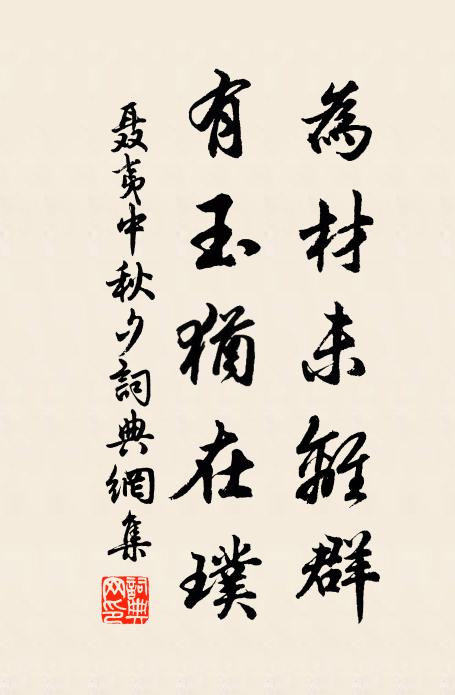 為材未離群
有玉猶在璞
聶夷中秋夕詞典網集
詞典网印